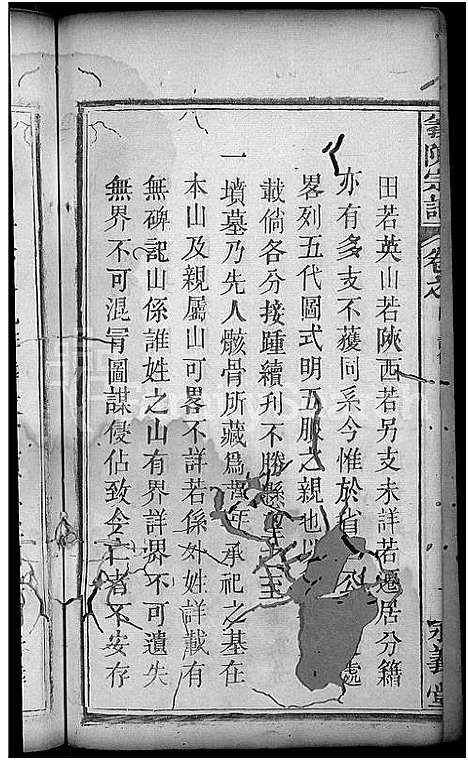 田若英山若陝西若另支未詳若遷居分籍
亦有多支不獲同系今惟於省處
畧列五代圖式明五服之親也以
載倘各分接踵續刊不勝懸望之至
一墳墓乃先人骸骨所藏為萬年承祀之基在
本山及親屬山可畧不詳若係外姓詳載有
無碑記山係誰姓之山有界詳界不可遺失
無界不可混冐圖謀侵佔致令亡者不安存
陳宗譜
卷之
義堂